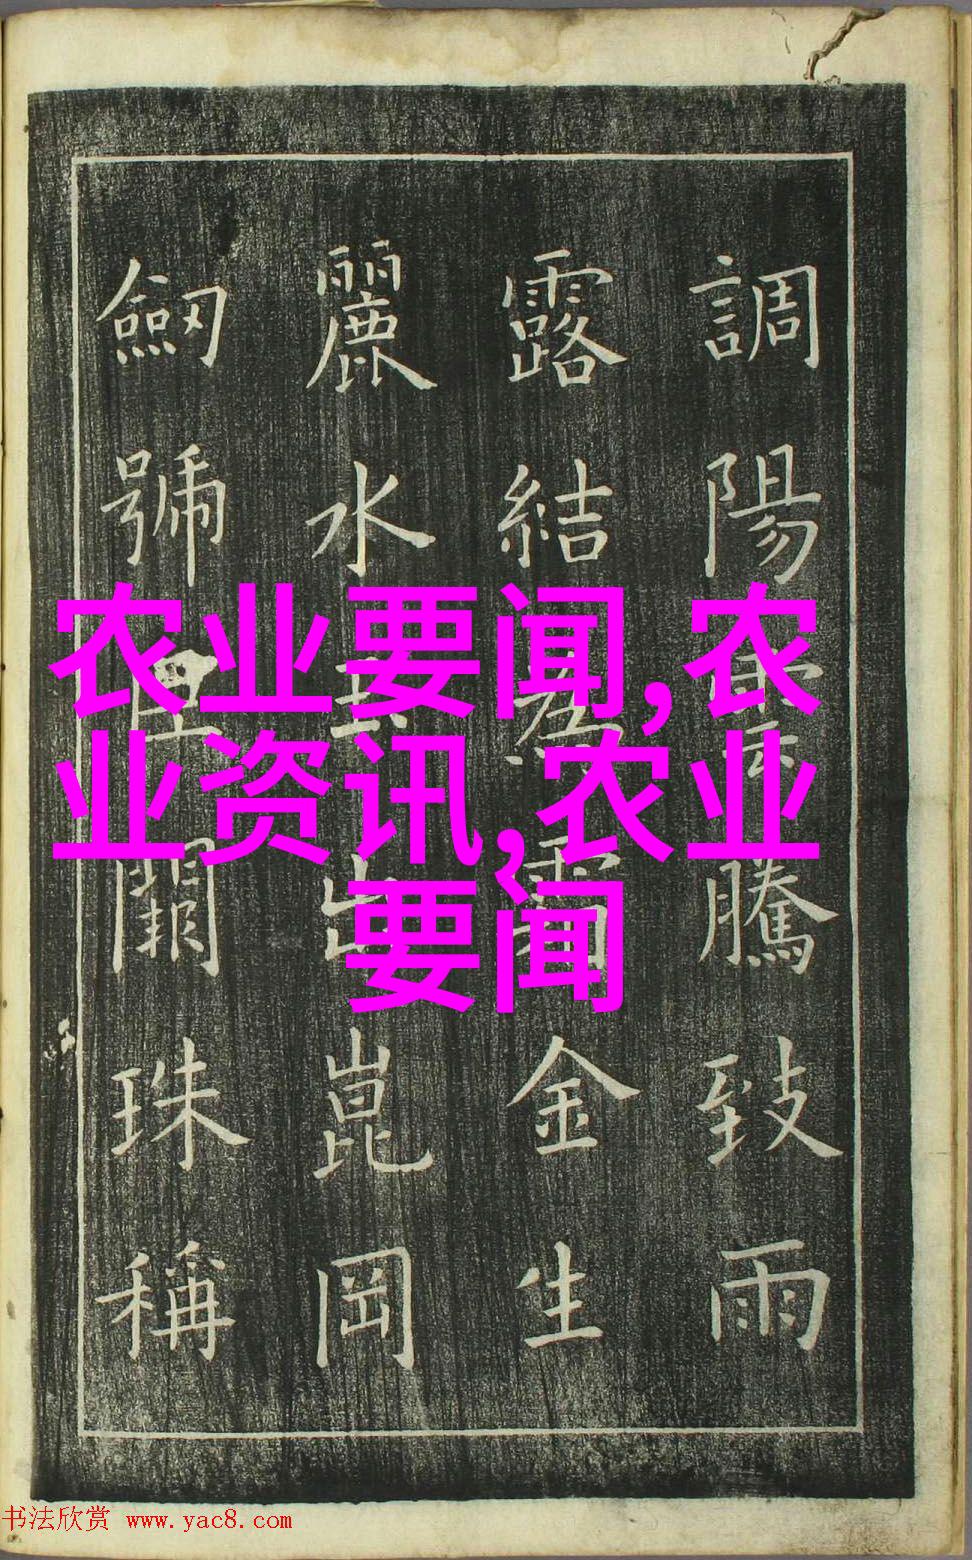 調陽雲騰致雨
露結為霜金生
麗水玉出崑岡
劒號巨闕珠稱
农业要闻,农
业资讯,农业
要闻
书法欣赏 www.yac8.com